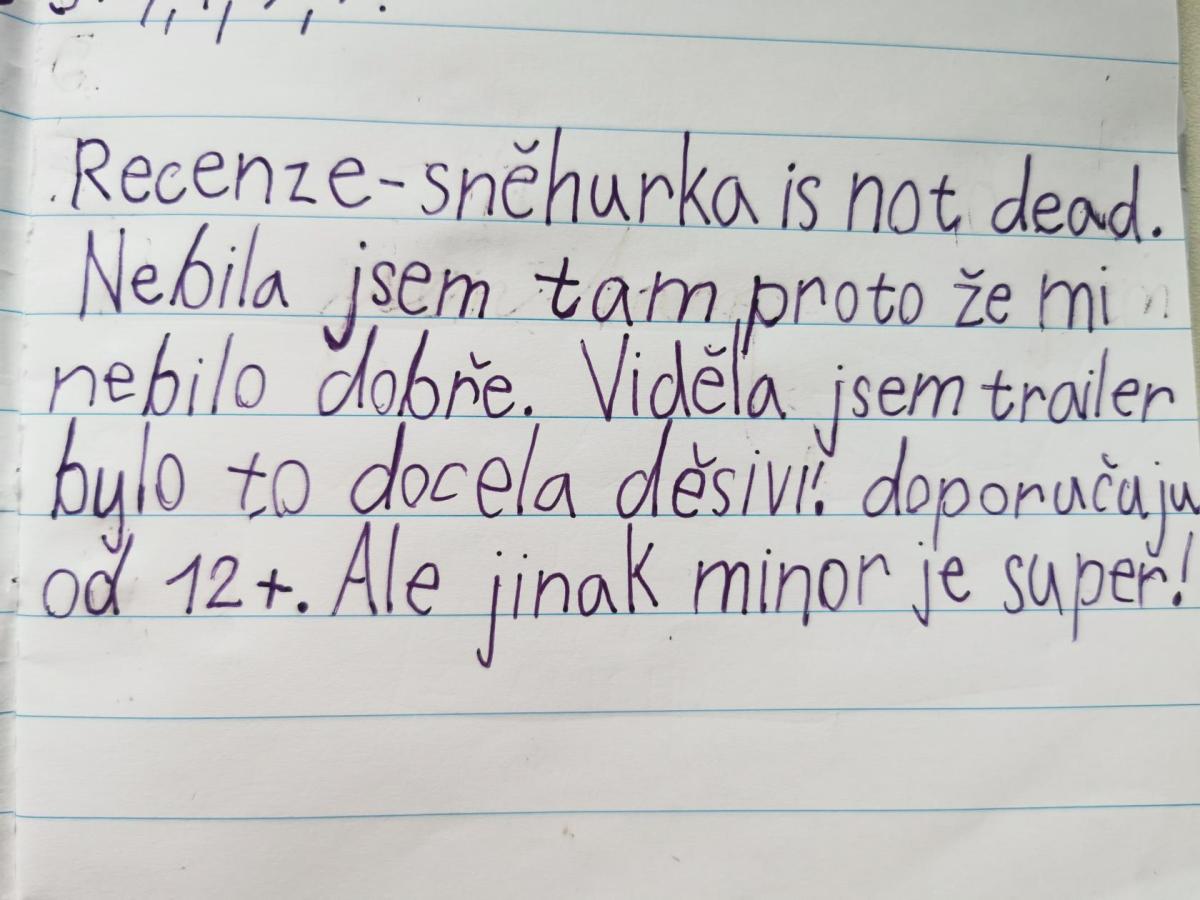 Recenze-sněhurka is not dead.
Nebila jsem tam, proto že mi
nebilo dobře. Viděla jsem trailer
bylo to docela děsiví! doporučaju
od 12+. Ale jinak minor je supeř!